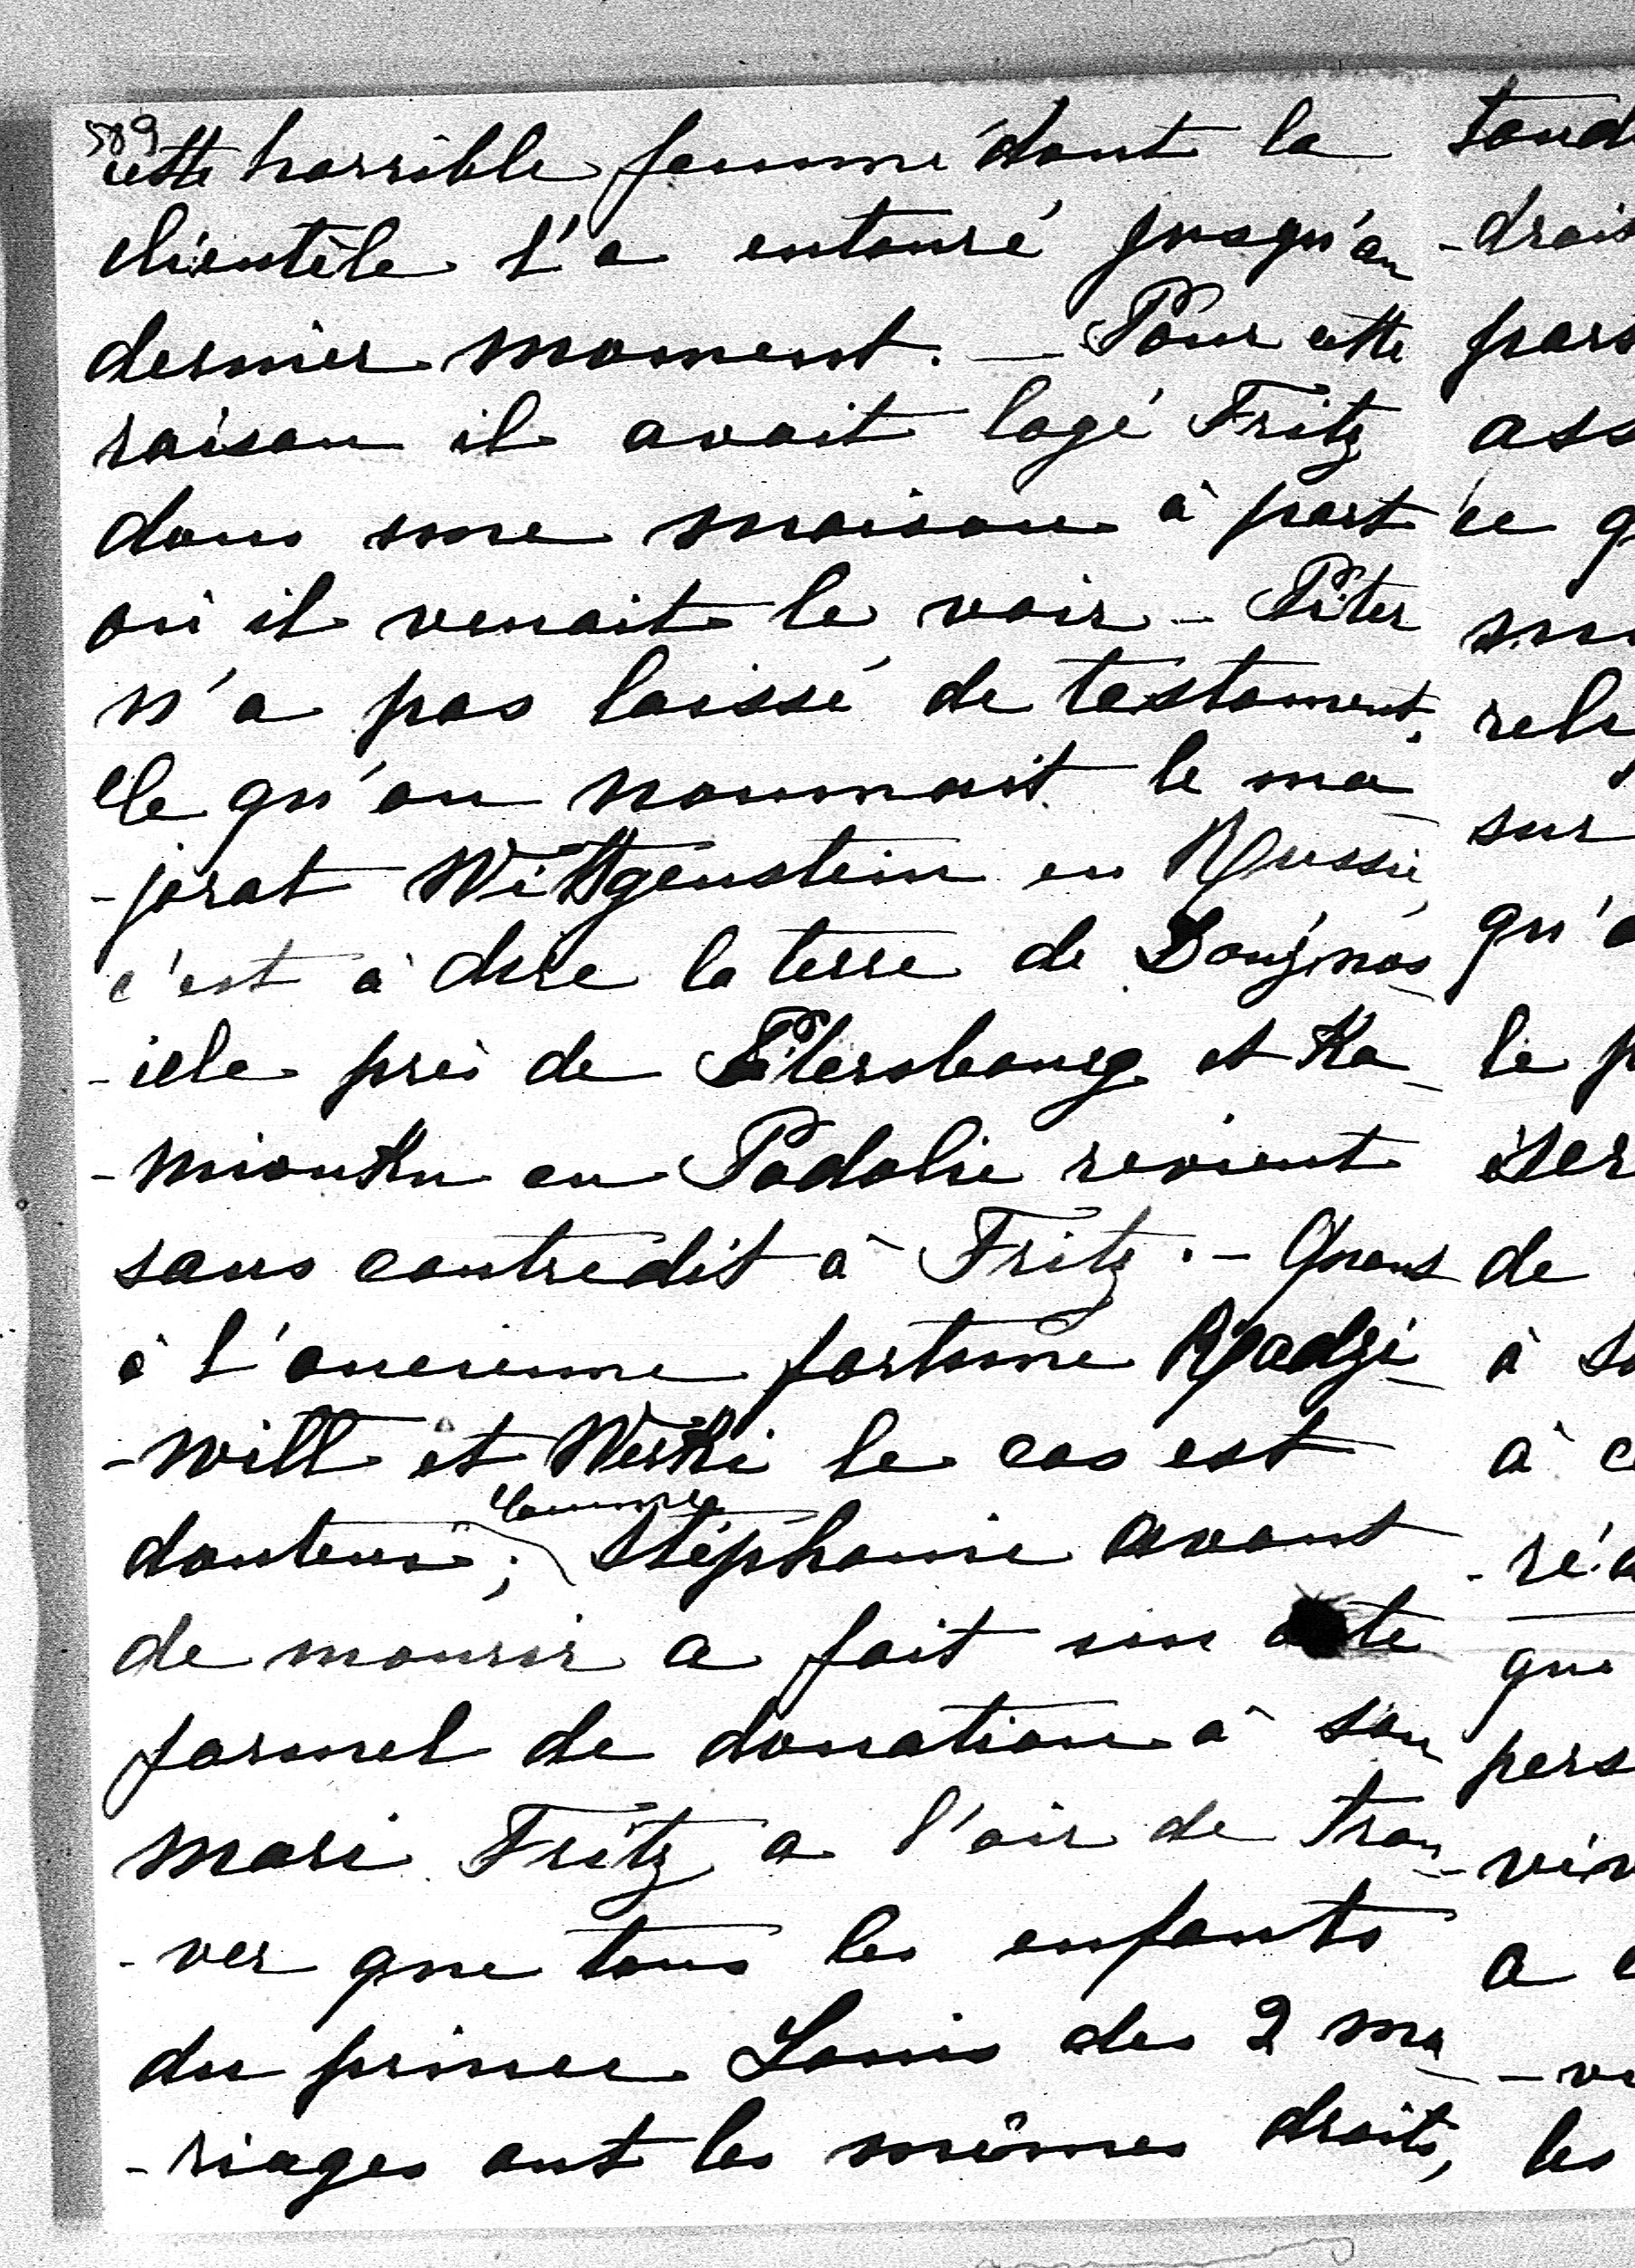 589
cette horrible femme dont la
clientèle l'a entouré jusqu'au
dernier moment. — Pour cette
raison il avait logé Fritz
dans une maison à part
où il venait le voir – Péter
n'a pas laissé de testament.
Ce qu'on nommait le ma
-jorat Wittgenstein en Russie,
c'est à dire la terre de
près de Pétersbourg et Ka-
-mionka en Podolie revient
sans contredit à Fritz. – Quant
à l'ancienne fortune Radzi-
-will et Werki le cas est
douteux; comme Stéphanie avant
de mourir a fait un acte
formel de donation à son
mari Fritz a l'air de trou-
-ver que tous les enfants
du prince Louis des 2 ma-
-riages ont les mêmes droits,
tand
-drais
pars
ass
ce q
rel
sur
qu'a
le p
de
à so
à c
-ré
que
pers
a
les